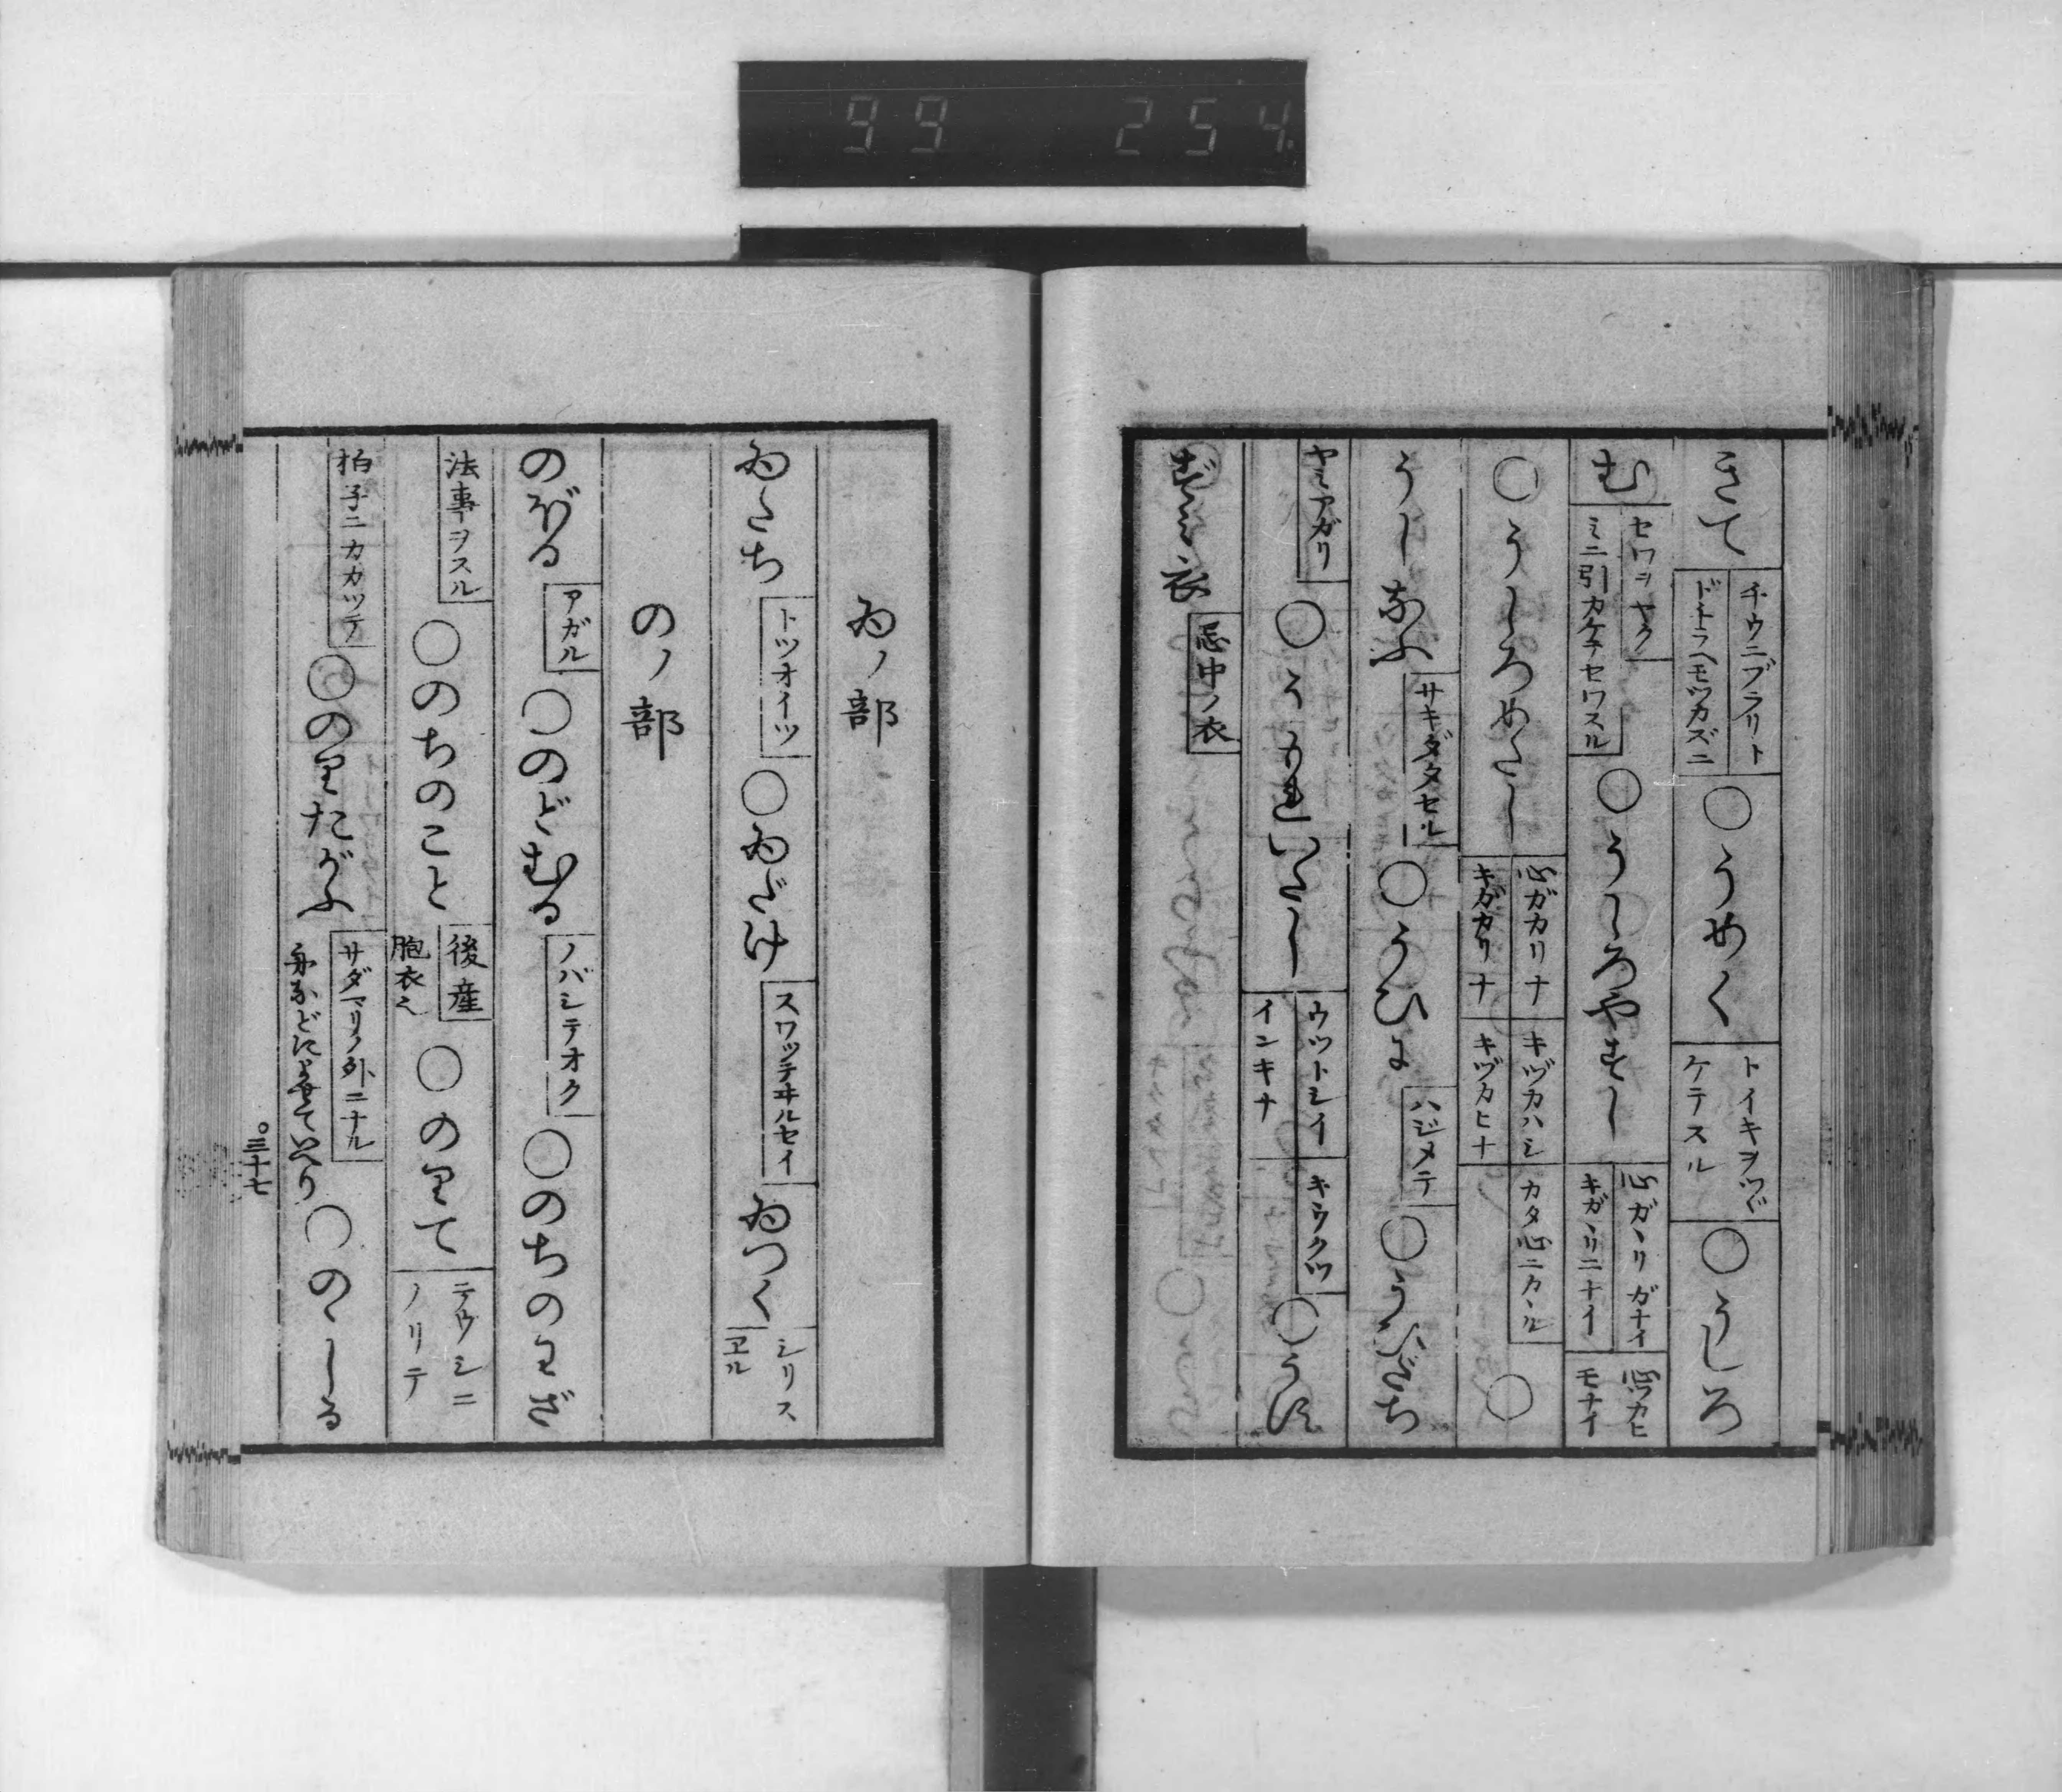 99 254
きて チウニブラリト
ドチラヘモツカズニ
○うめく トイキヲツヾ
ケテスル
○うしろ
む セワヲヤク
ミニ引カケテセワスル
○うしろやすし 心ガヽリガナイ
キガヽリニナイ
心ツカヒ
モナイ
○うしろめたし 心ガカリナ
キガカリナ
キヅカハシ
キヅカヒナ
カタ心ニカヽル
○
うしなふ サキダタセル
○うひに ハジメテ
○うひだち
ヤミアガリ
○うもれいたし ウツトシイ
インキナ
キウクツ
○うす
ずみ衣 忌中ノ衣
ゐノ部
ゐたち トツオイツ
○ゐだけ スワツテヰルセイ
ゐつく シリス
ヱル
のノ部
のぼる アガル
○のどむる ノバシテオク
○のちのわざ
法事ヲスル
○のちのこと 後産
胞衣也
○のりて テウシニ
ノリテ
拍子ニカカツテ
○のりたがふ サダマリノ外ニナル
○のゝしる
三十七